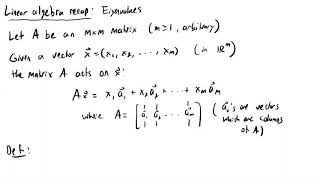 Linear algebra recap: Eigenvalues
Let A be an m×m matrix (m≥1, arbitrary)
Given a vector x⃗=(x₁, x₂, ..., xₘ) (in ℝᵐ)
the matrix A acts on x⃗:
A x⃗ = x₁a⃗₁ + x₂a⃗₂ + ... + xₘa⃗ₘ
where A = [a⃗₁ a⃗₂ ... a⃗ₘ] (a⃗ᵢ's are vectors
which are columns
of A)
Def: